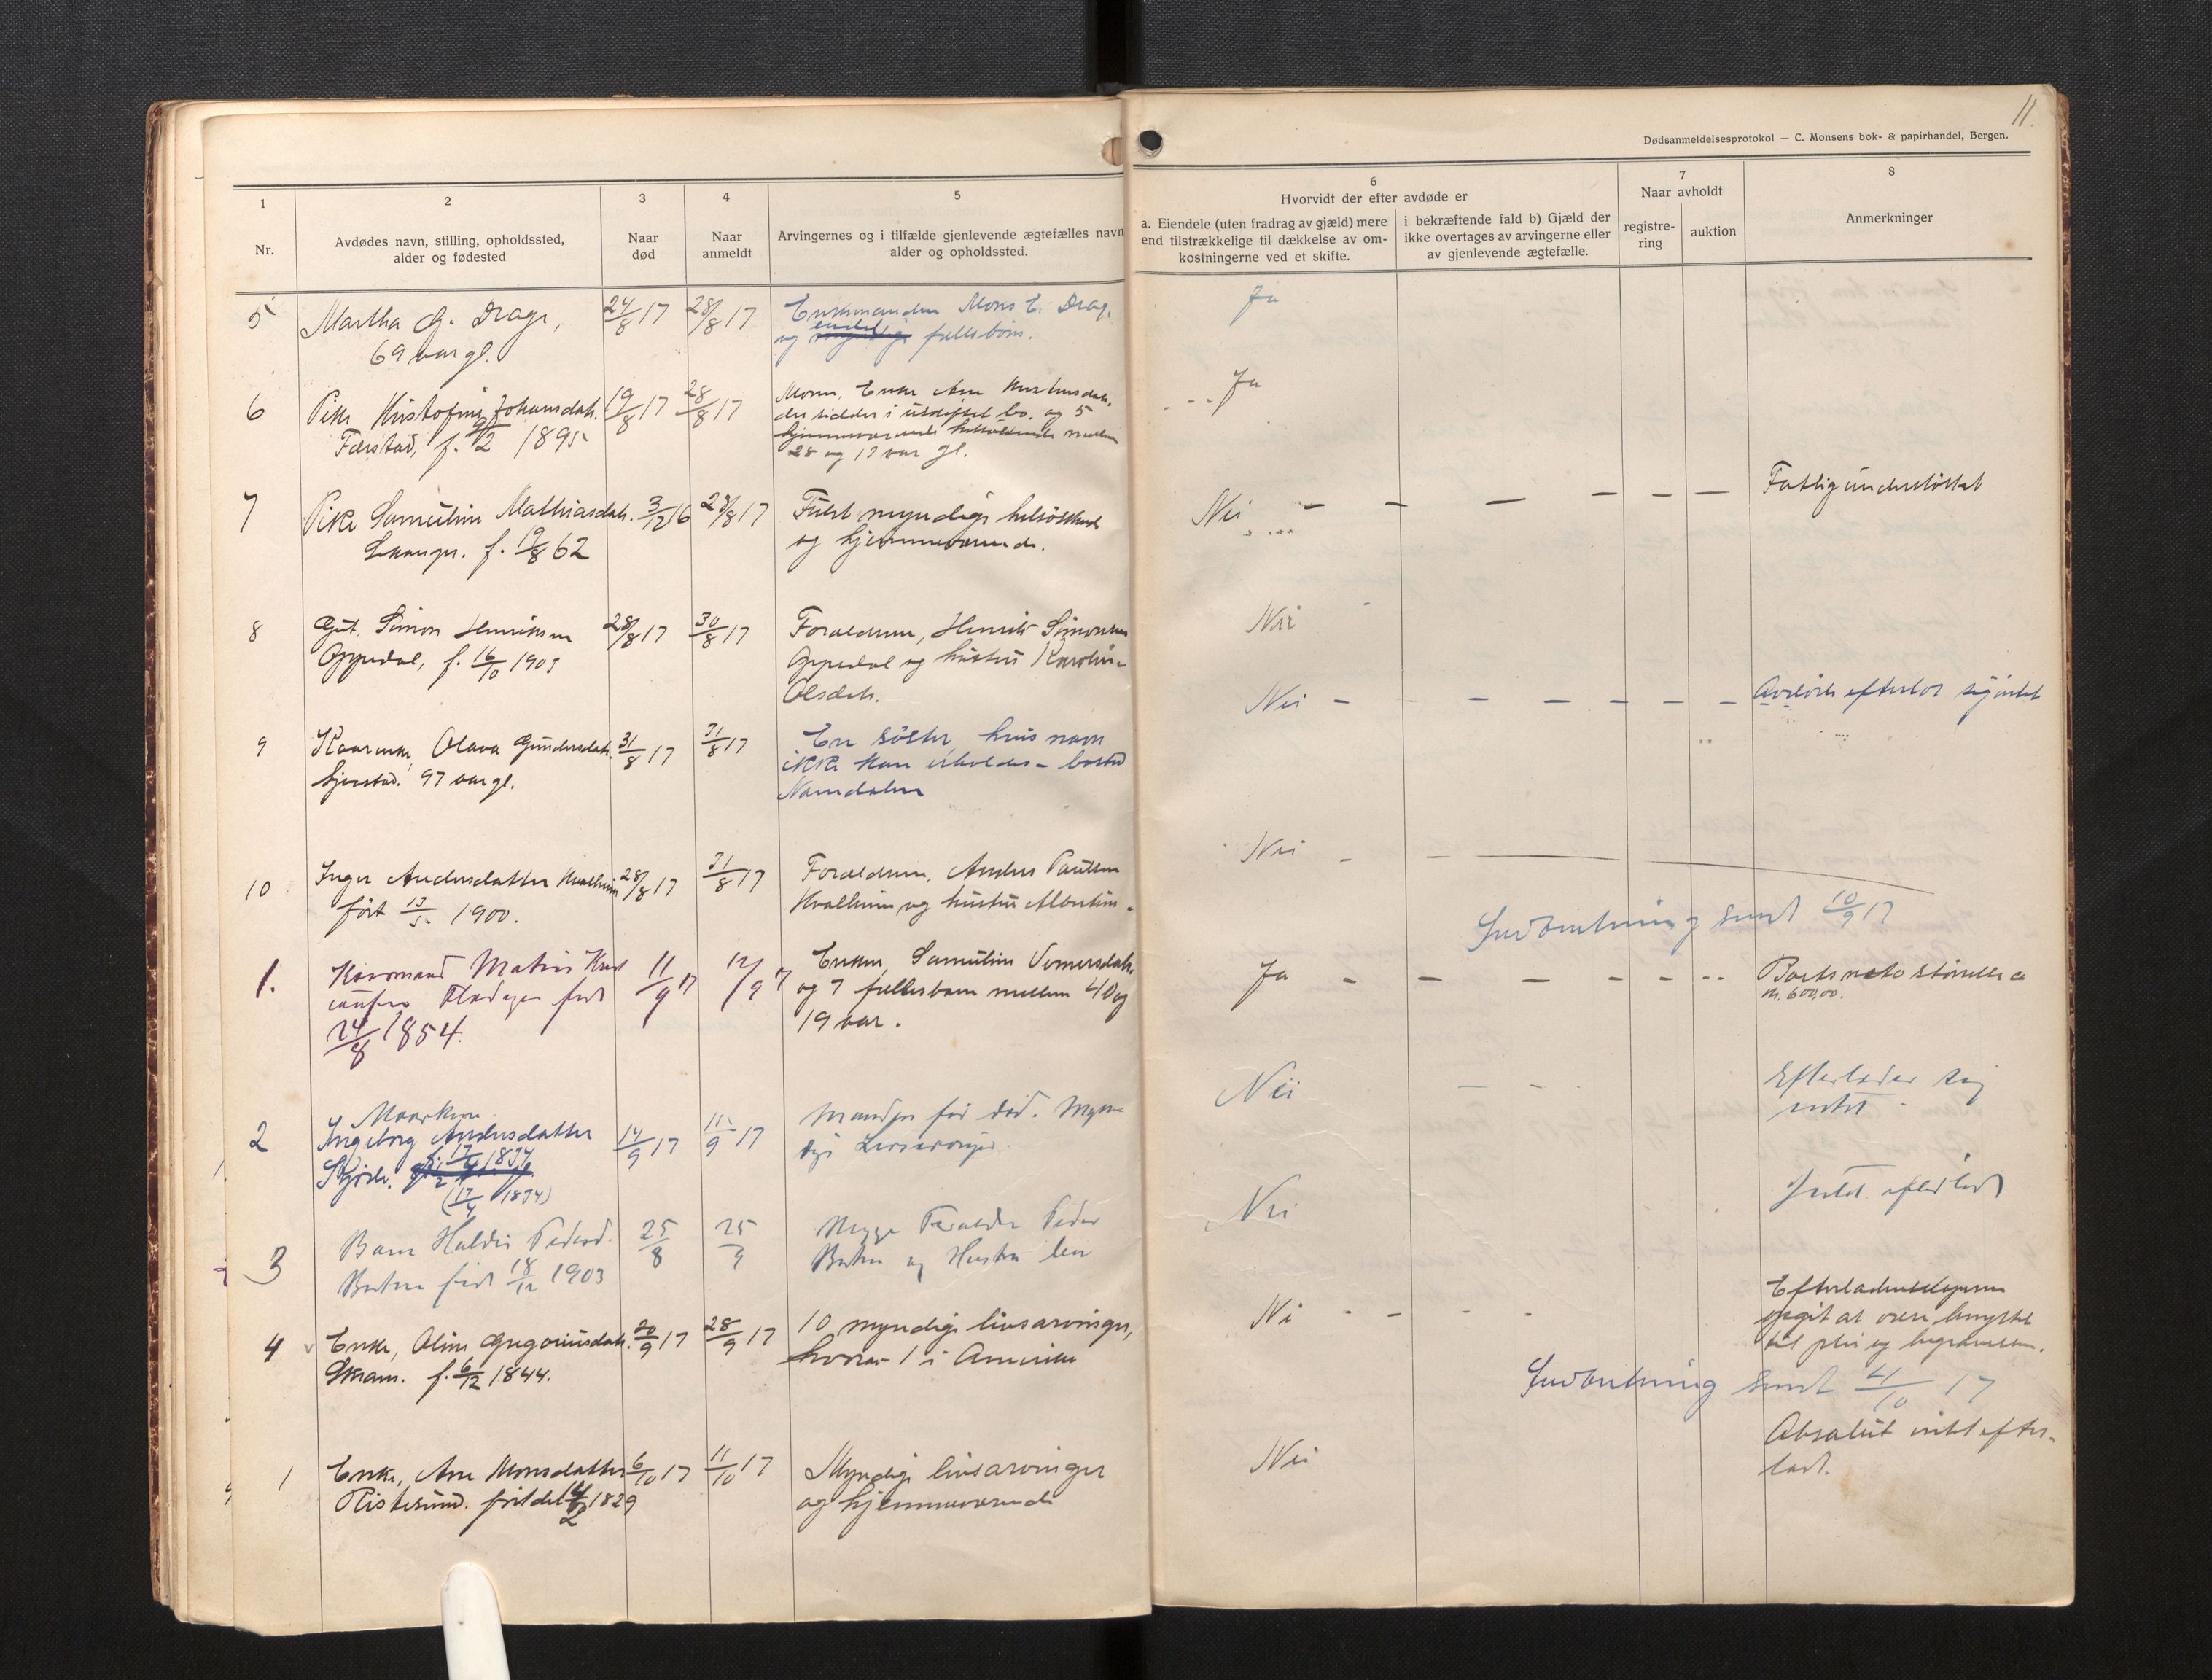 11.
Dødsanmeldelsesprotokol — C. Monsens bok- & papirhandel, Bergen.
1
Nr.
2
Avdødes navn, stilling, opholdssted,
alder og fødested
3
Naar
død
4
Naar
anmeldt
5
Arvingernes og i tilfælde gjenlevende ægtefælles navn
alder og opholdssted.
6
Hvorvidt der efter avdøde er
a. Eiendele (uten fradrag av gjæld) mere
end tilstrækkelige til dækkelse av om-
kostningerne ved et skifte.
i bekræftende fald b) Gjæld der
ikke overtages av arvingerne eller
av gjenlevende ægtefælle.
7
Naar avholdt
registre-
ring
auktion
8
Anmerkninger
5 Martha G. Drage, 24/8 17 28/8 17 Enkemanden Mons E. Drage Ja
69 aar gl. og fællesbørn.
6 Pike Kristofine Johansdatr. 19/8 17 28/8 17 Moren, Enke Ane Ja
der sidder i uskiftet bo. og 5
Færstad, f. 9/2 1895 hjemmeværende helsøskende mellem
28 og 17 aar gl.
7 Pike Samuline Mathiasdatr. 3/12 16 28/8 17 Fuldt myndige helsøskende Nei Fattigunderstøttet
f. 19/8 62 og hjemmeværende.
8 Gut, Simon Henriksen 28/8 17 30/8 17 Forældrene, Henrik Simonsen Nei
Oppedal, f. 16/10 1903 Oppedal og hustru Karoline
Olsdatr.
9 Kaarenke, Olava Gundersdatr. 31/8 17 31/8 17 En søster, hvis navn Nei Avdøde efterlot sig intet
97 aar gl. ikke kan erholdes - bosted
Namdalen
10 Inger Andersdatter Kvalheim 28/8 17 31/8 17 Forældrene, Anders Paulsen Nei
født 13/5 1900. Kvalheim og hustru Albertine.
Indberetning sendt 10/9 17
1. Kaarmand Matias 11/9 17 12/9 17 Enken, Samuline Ja Boets netto størrelse ca
født og 7 fællesbarn mellem 40 og kr. 600,00.
24/8 1854. 19 aar.
2 Kaarkone
Ingeborg Andersdatter 14/9 17 15/9 17 Manden før død. Myn- Nei Efterlader sig
f. 17/4 1834 dige Livsarvinger. intet.
(17/4 1834)
3 Barn Haldis Pedersd. 25/8 25/9 Begge Forældre Peder Nei Intet efterladt
født 18/12 1903 og Hustru lever
4 Enke, Oline Gregoriusdatr. 20/9 17 28/9 17 10 myndige livsarvinger, Nei Efterladenskaperne
Skram. f. 6/12 1844. hvorav 1 i Amerika opgit at være benyttet
til pleie og begravelsen.
Indberetning sendt 4/10 17
1 Enke, Ane Monsdatter 6/10 17 11/10 17 Myndige livsarvinger Nei Absolut intet efter-
Ristesund. født 1829 og hjemmeværende ladt.